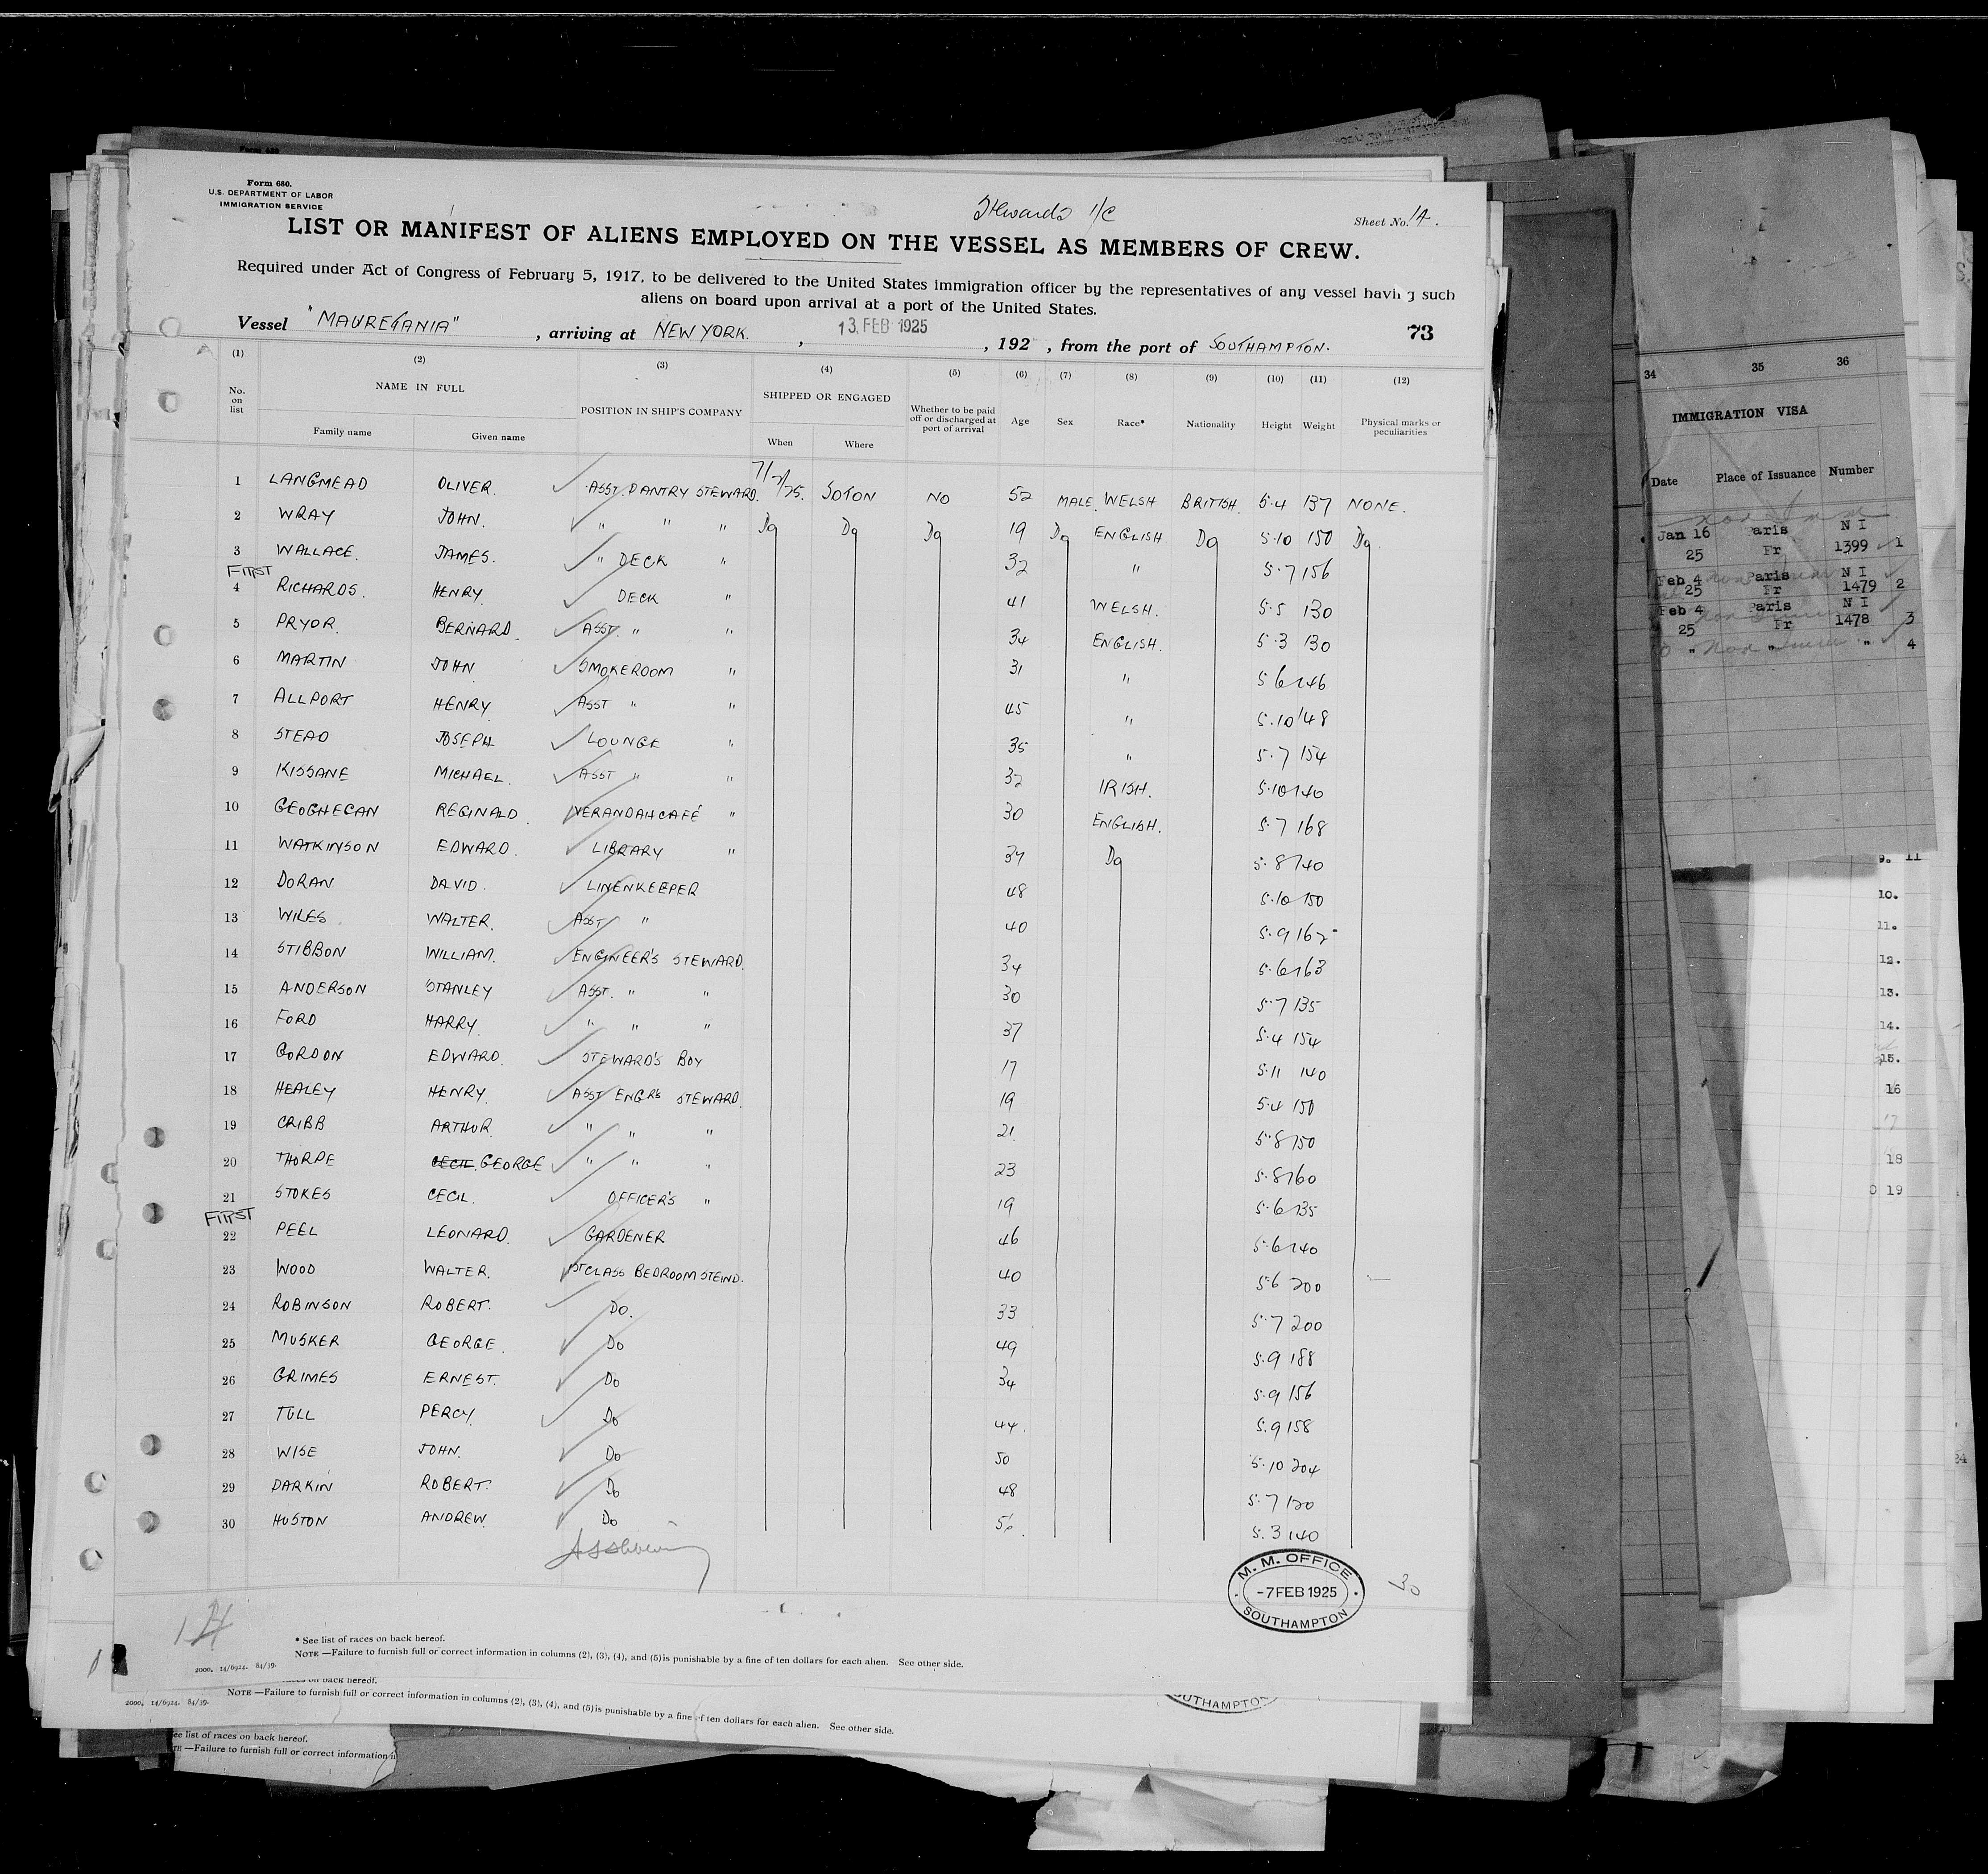 Form 680.
U.S. DEPARTMENT OF LABOR
IMMIGRATION SERVICE
Stewards 1/C
Sheet No. 14.
LIST OR MANIFEST OF ALIENS EMPLOYED ON THE VESSEL AS MEMBERS OF CREW.
Required under Act of Congress of February 5, 1917, to be delivered to the United States immigration officer by the representatives of any vessel having such
aliens on board upon arrival at a port of the United States.
Vessel "MAURETANIA", arriving at NEW YORK. 13 FEB 1925, 192 , from the port of SOUTHAMPTON. 73
(1) (2) (3) (4) (5) (6) (7) (8) (9) (10) (11) (12)
No. on list NAME IN FULL POSITION IN SHIP'S COMPANY SHIPPED OR ENGAGED Whether to be paid off or discharged at port of arrival Age Sex Race* Nationality Height Weight Physical marks or peculiarities
Family name Given name When Where
1 LANGMEAD OLIVER. ASST. PANTRY STEWARD. 7/2/25. SOTON NO 52 MALE. WELSH BRITISH. 5.4 137 NONE.
2 WRAY JOHN. " " " Do Do Do 19 Do ENGLISH Do 5.10 150 Do
3 WALLACE. JAMES. " DECK " 32 " 5.7 156
FIRST
4 RICHARDS. HENRY. DECK " 41 WELSH. 5.5 130
5 PRYOR. BERNARD. ASST. " " 34 ENGLISH. 5.3 130
6 MARTIN JOHN SMOKEROOM " 31 " 5.6 146
7 ALLPORT HENRY. ASST " " 45 " 5.10 148
8 STEAD JOSEPH LOUNGE " 35 " 5.7 154
9 KISSANE MICHAEL. ASST " " 32 IRISH. 5.10 140
10 GEOGHEGAN REGINALD. VERANDAH CAFÉ " 30 ENGLISH. 5.7 168
11 WATKINSON EDWARD. LIBRARY " 34 Do 5.8 140
12 DORAN DAVID. LINENKEEPER 48 5.10 150
13 WILES. WALTER. ASST " 40 5.9 162
14 STIBBON WILLIAM. ENGINEER'S STEWARD. 34 5.6 163
15 ANDERSON STANLEY ASST. " " 30 5.7 135
16 FORD HARRY. " " " 37 5.4 154
17 GORDON EDWARD. STEWARD'S BOY 17 5.11 140
18 HEALEY HENRY. ASST ENGR'S STEWARD. 19 5.4 150
19 CRIBB ARTHUR. " " " 21. 5.8 150
20 THORPE CECIL. GEORGE " " " 23 5.8 160
21 STOKES CECIL. OFFICER'S " 19 5.6 135
FIRST
22 PEEL LEONARD. GARDENER 46 5.6 140
23 WOOD WALTER. 1ST CLASS BEDROOM STEWD. 40 5.6 200
24 ROBINSON ROBERT. Do. 33 5.7 200
25 MUSKER GEORGE. Do 49 5.9 188
26 GRIMES ERNEST. Do 34 5.9 156
27 TULL PERCY. Do 44. 5.9 158
28 WISE JOHN. Do 50 5.10 204
29 DARKIN ROBERT. Do 48 5.7 120
30 HUSTON ANDREW. Do 56. 5.3 140
M. M. OFFICE
-7 FEB 1925
SOUTHAMPTON
30
14
* See list of races on back hereof.
NOTE —Failure to furnish full or correct information in columns (2), (3), (4), and (5) is punishable by a fine of ten dollars for each alien. See other side.
2000. 14/6924. 84/39.
back hereof.
NOTE —Failure to furnish full or correct information in columns (2), (3), (4), and (5) is punishable by a fine of ten dollars for each alien. See other side.
2000. 14/6924. 84/39.
SOUTHAMPTON
See list of races on back hereof.
—Failure to furnish full or correct information
34 35 36
IMMIGRATION VISA
Date Place of Issuance Number
Jan 16 Paris N I
25 Fr 1399 1
Feb 4 Paris N I
25 Fr 1479 2
Feb 4 Paris N I
25 Fr 1478 3
" " " 4
9. 11
10.
11.
12.
13.
14.
15.
16
17
18
19
24